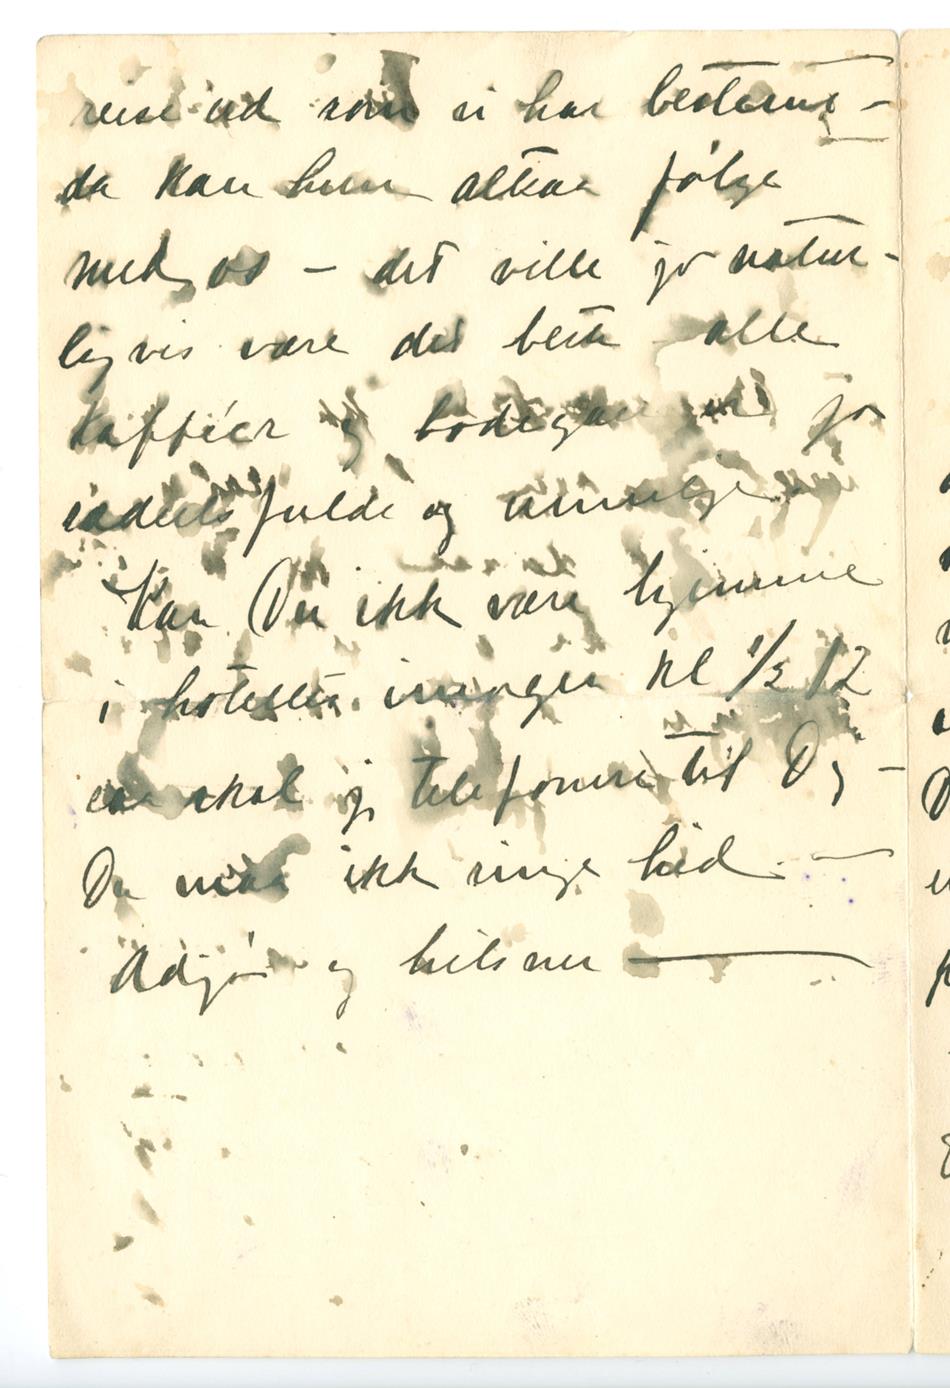 reise ud som vi har bestemt –
da kan hun altsaa følge
med os – det ville jo natur-
ligvis være det beste alle
kaffeer og bodegaer er jo
rædselsfulde og umulige
Kan Du ikke være hjemme
i hotellet imorgen kl 1/2 12
saa skal jeg telefonere til Dig –
Du maa ikke ringe hid. –
Adjø og hilsner –